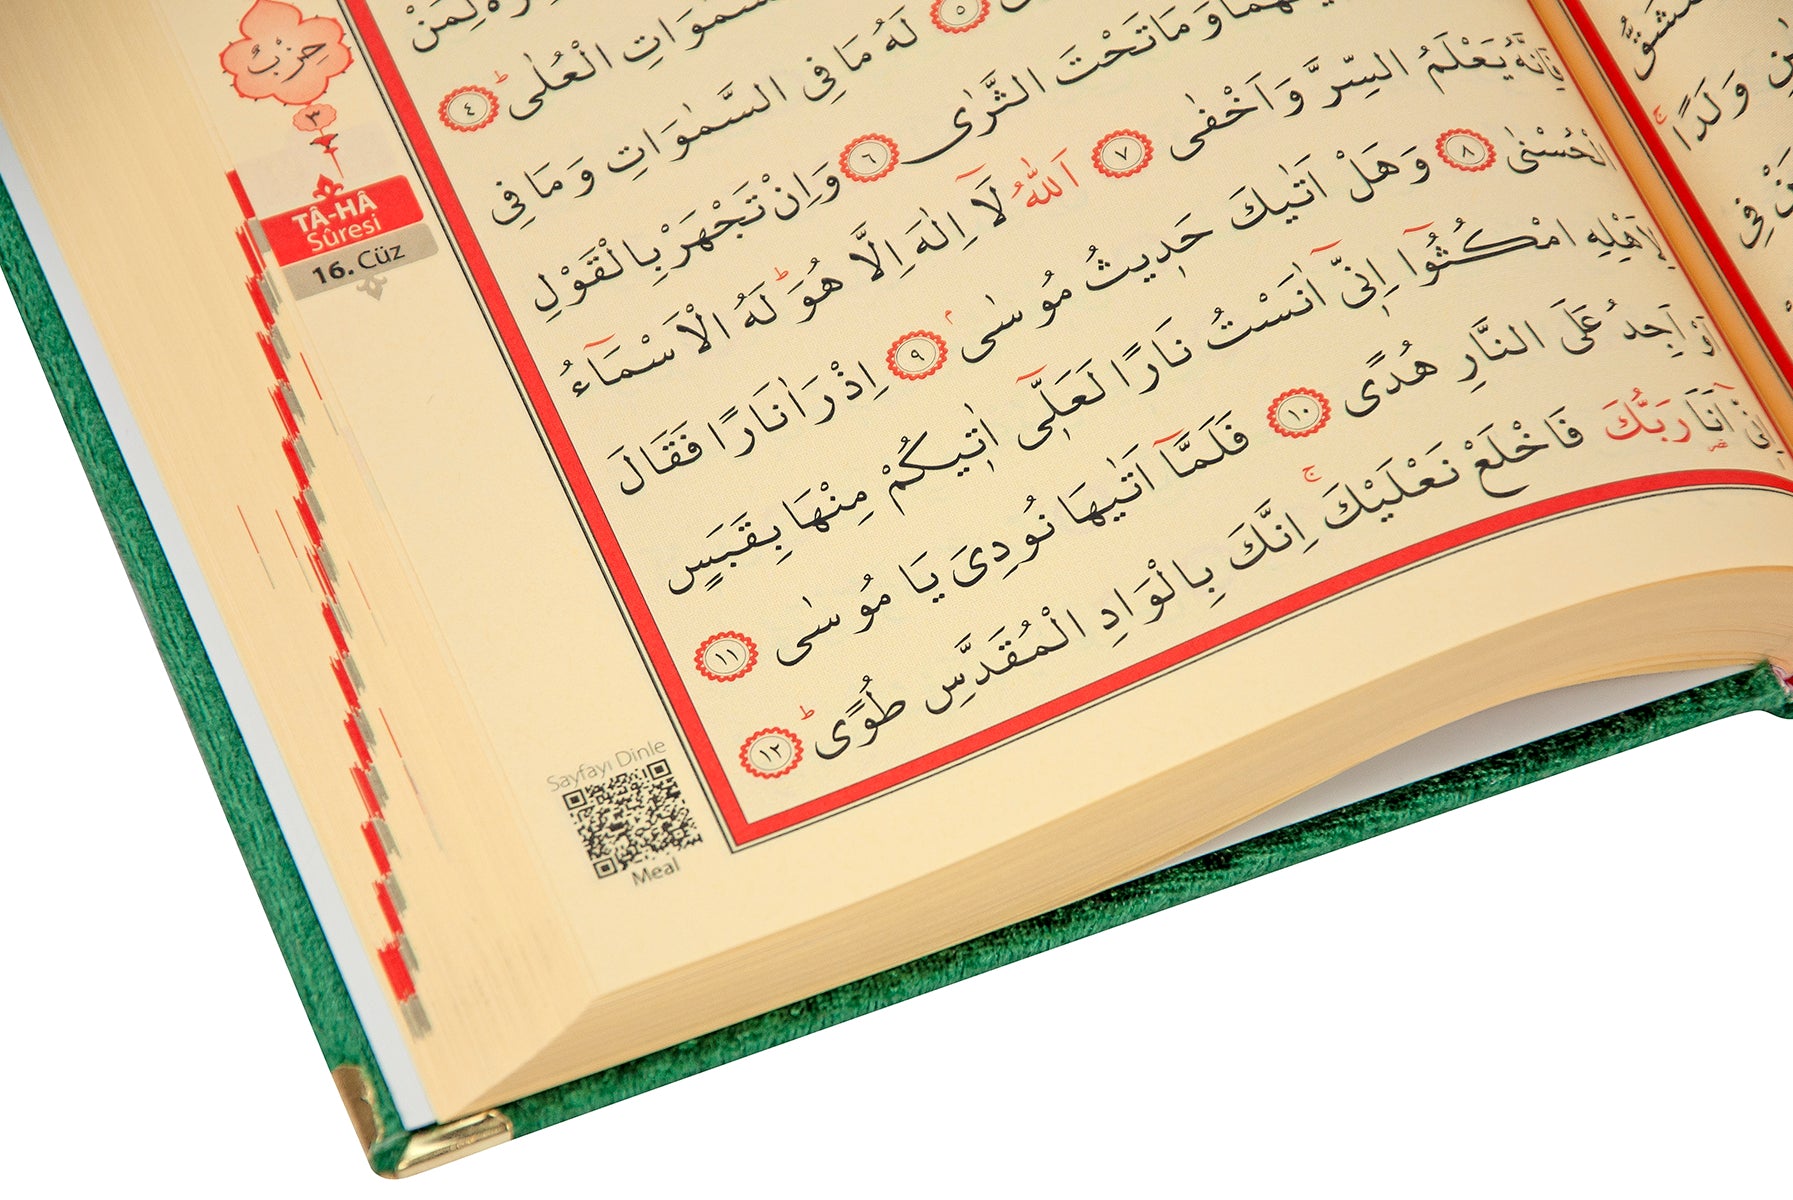 السَّمٰوَاتِ الْعُلٰىۜ ﴿٤﴾
﴿٥﴾ لَهُ مَا فِي السَّمٰوَاتِ وَمَا فِي
وَمَا تَحْتَ الثَّرٰى ﴿٦﴾ وَاِنْ تَجْهَرْ بِالْقَوْلِ
فَاِنَّهُ يَعْلَمُ السِّرَّ وَاَخْفٰى ﴿٧﴾ اَللّٰهُ لَٓا اِلٰهَ اِلَّا هُوَۜ لَهُ الْاَسْمَٓاءُ
الْحُسْنٰى ﴿٨﴾ وَهَلْ اَتٰيكَ حَد۪يثُ مُوسٰىۢ ﴿٩﴾ اِذْ رَاٰ نَارًا فَقَالَ
لِاَهْلِهِ امْكُثُٓوا اِنّ۪ٓي اٰنَسْتُ نَارًا لَعَلّ۪ٓي اٰت۪يكُمْ مِنْهَا بِقَبَسٍ
اَوْ اَجِدُ عَلَى النَّارِ هُدًى ﴿١٠﴾ فَلَمَّٓا اَتٰيهَا نُودِيَ يَا مُوسٰى ﴿١١﴾
اِنّ۪ٓي اَنَا۬ رَبُّكَ فَاخْلَعْ نَعْلَيْكَۚ اِنَّكَ بِالْوَادِ الْمُقَدَّسِ طُوًىۜ ﴿١٢﴾
حِزْبٌ
٣
TÂ-HÂ
Sûresi
16. Cüz
Sayfayı Dinle
Meal
وَلَدًاۚ